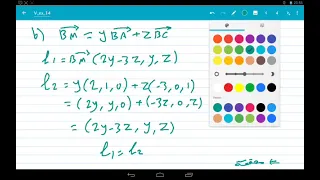 b) BM = yBA + zBC
l₁ = BM (2y-3z, y, z)
l₂ = y(2,1,0) + z(-3,0,1)
= (2y, y, 0) + (-3z, 0, z)
= (2y-3z, y, z)
l₁ = l₂